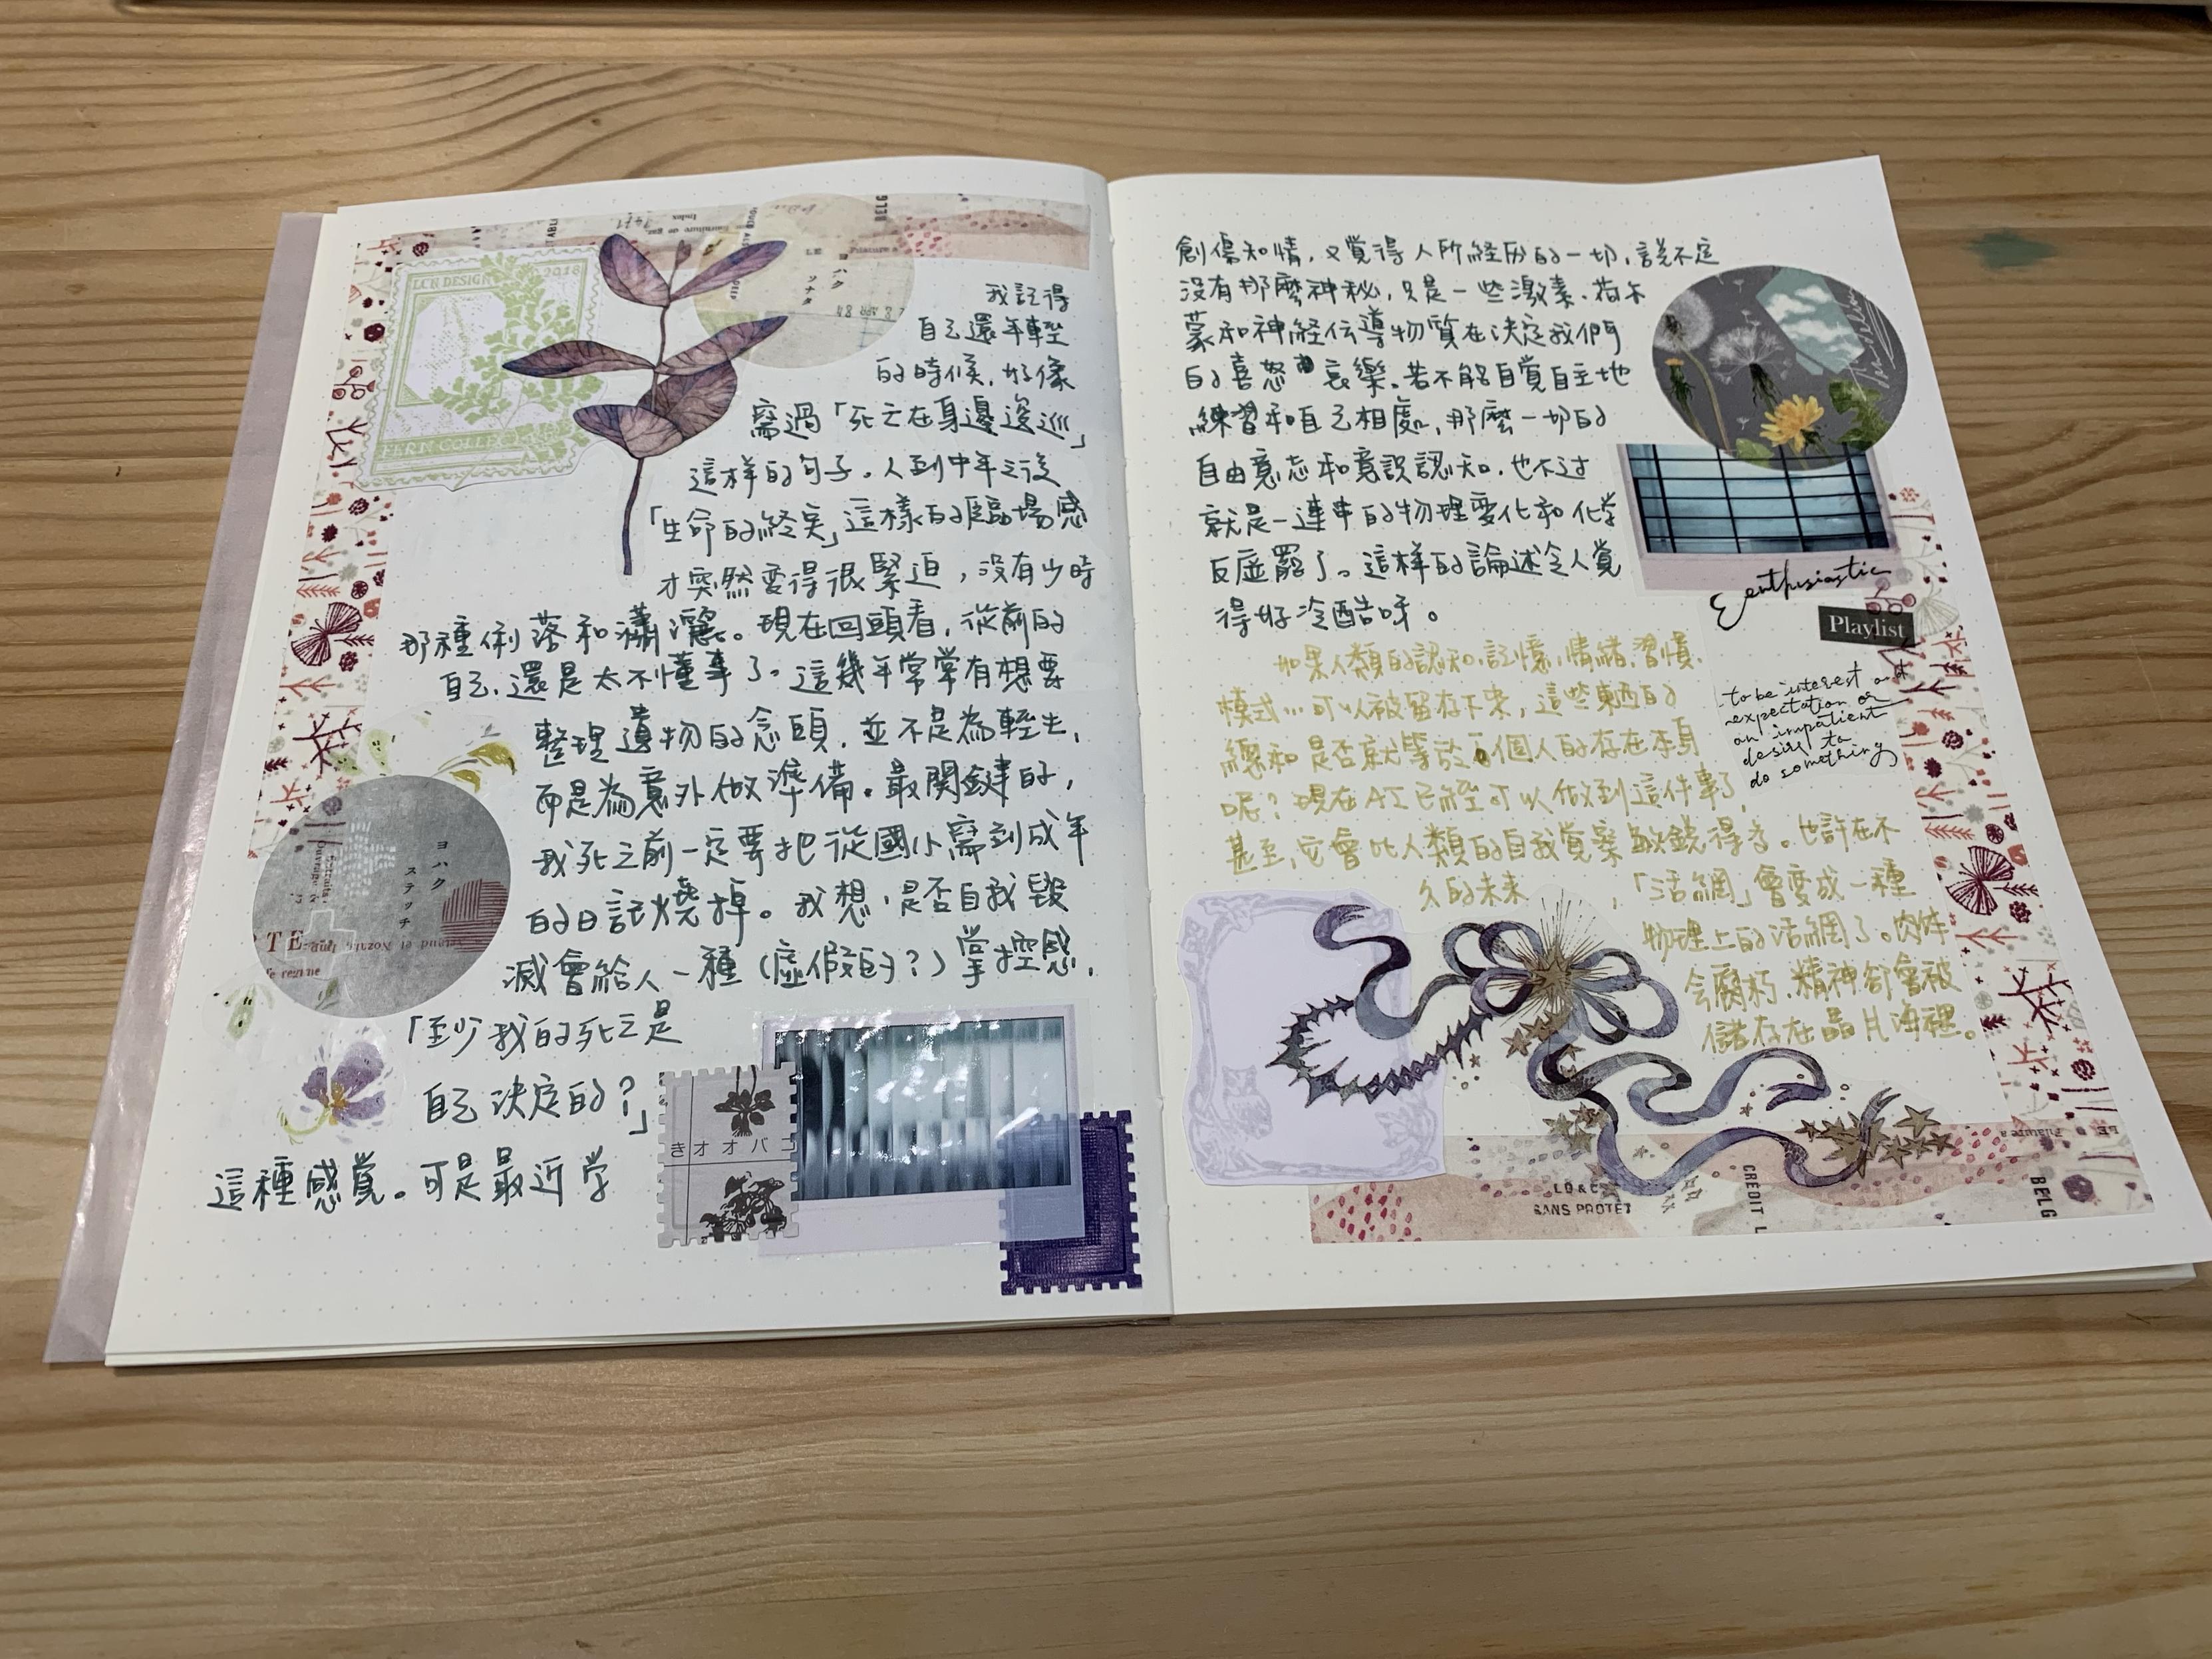 LCN DESIGN
2018
FERN COLLECT
ヨハク
ソナタ
BELG
我記得
自己還年輕
的時候,好像
寫過「死亡在身邊逡巡」
這样的句子。人到中年之後
「生命的終笑」這樣的臨場感
才突然变得很緊迫,没有少時
那種俐落和瀟灑。現在回頭看,從前的
自己,還是太不懂事了。這幾年常常有想要
整理遺物的念頭,並不是為輕生,
而是為意外做準備。最関鍵的,
我死之前一定要把從國小寫到成年
的日記燒掉。我想,是否自我毀
滅會給人一種(虛假的?)掌控感,
「至少我的死亡是
自己決定的?」
這種感覚。可是最近学
ヨハク
ステッチ
きオオバコ
創傷知情,又覚得人所経历的一切,説不定
没有那麼神秘,只是一些激素、荷尔
蒙和神経伝導物質在决定我們
的喜怒哀樂。若不能自覚自主地
練習和自己相處,那麼一切的
自由意志和意識認知,也不过
就是一連串的物理变化和化学
反应罷了。這样的論述令人覚
得好冷酷呀。
Enthusiastic
Playlist
to be interest and
expectation or
an impatient
desire to
do something
如果人類的認知、記憶、情緒、習慣、
模式…可以被留存下来,這些東西的
總和是否就等於一個人的存在本身
呢?現在AI已経可以做到這件事了,
甚至,它會比人類的自我覚察敏鋭得多。也許在不
久的未来,「活網」會变成一種
物理上的活網了。肉体
会腐朽,精神卻會被
儲存在晶片海裡。
LD & C
SANS PROTET
CREDIT L
BELG